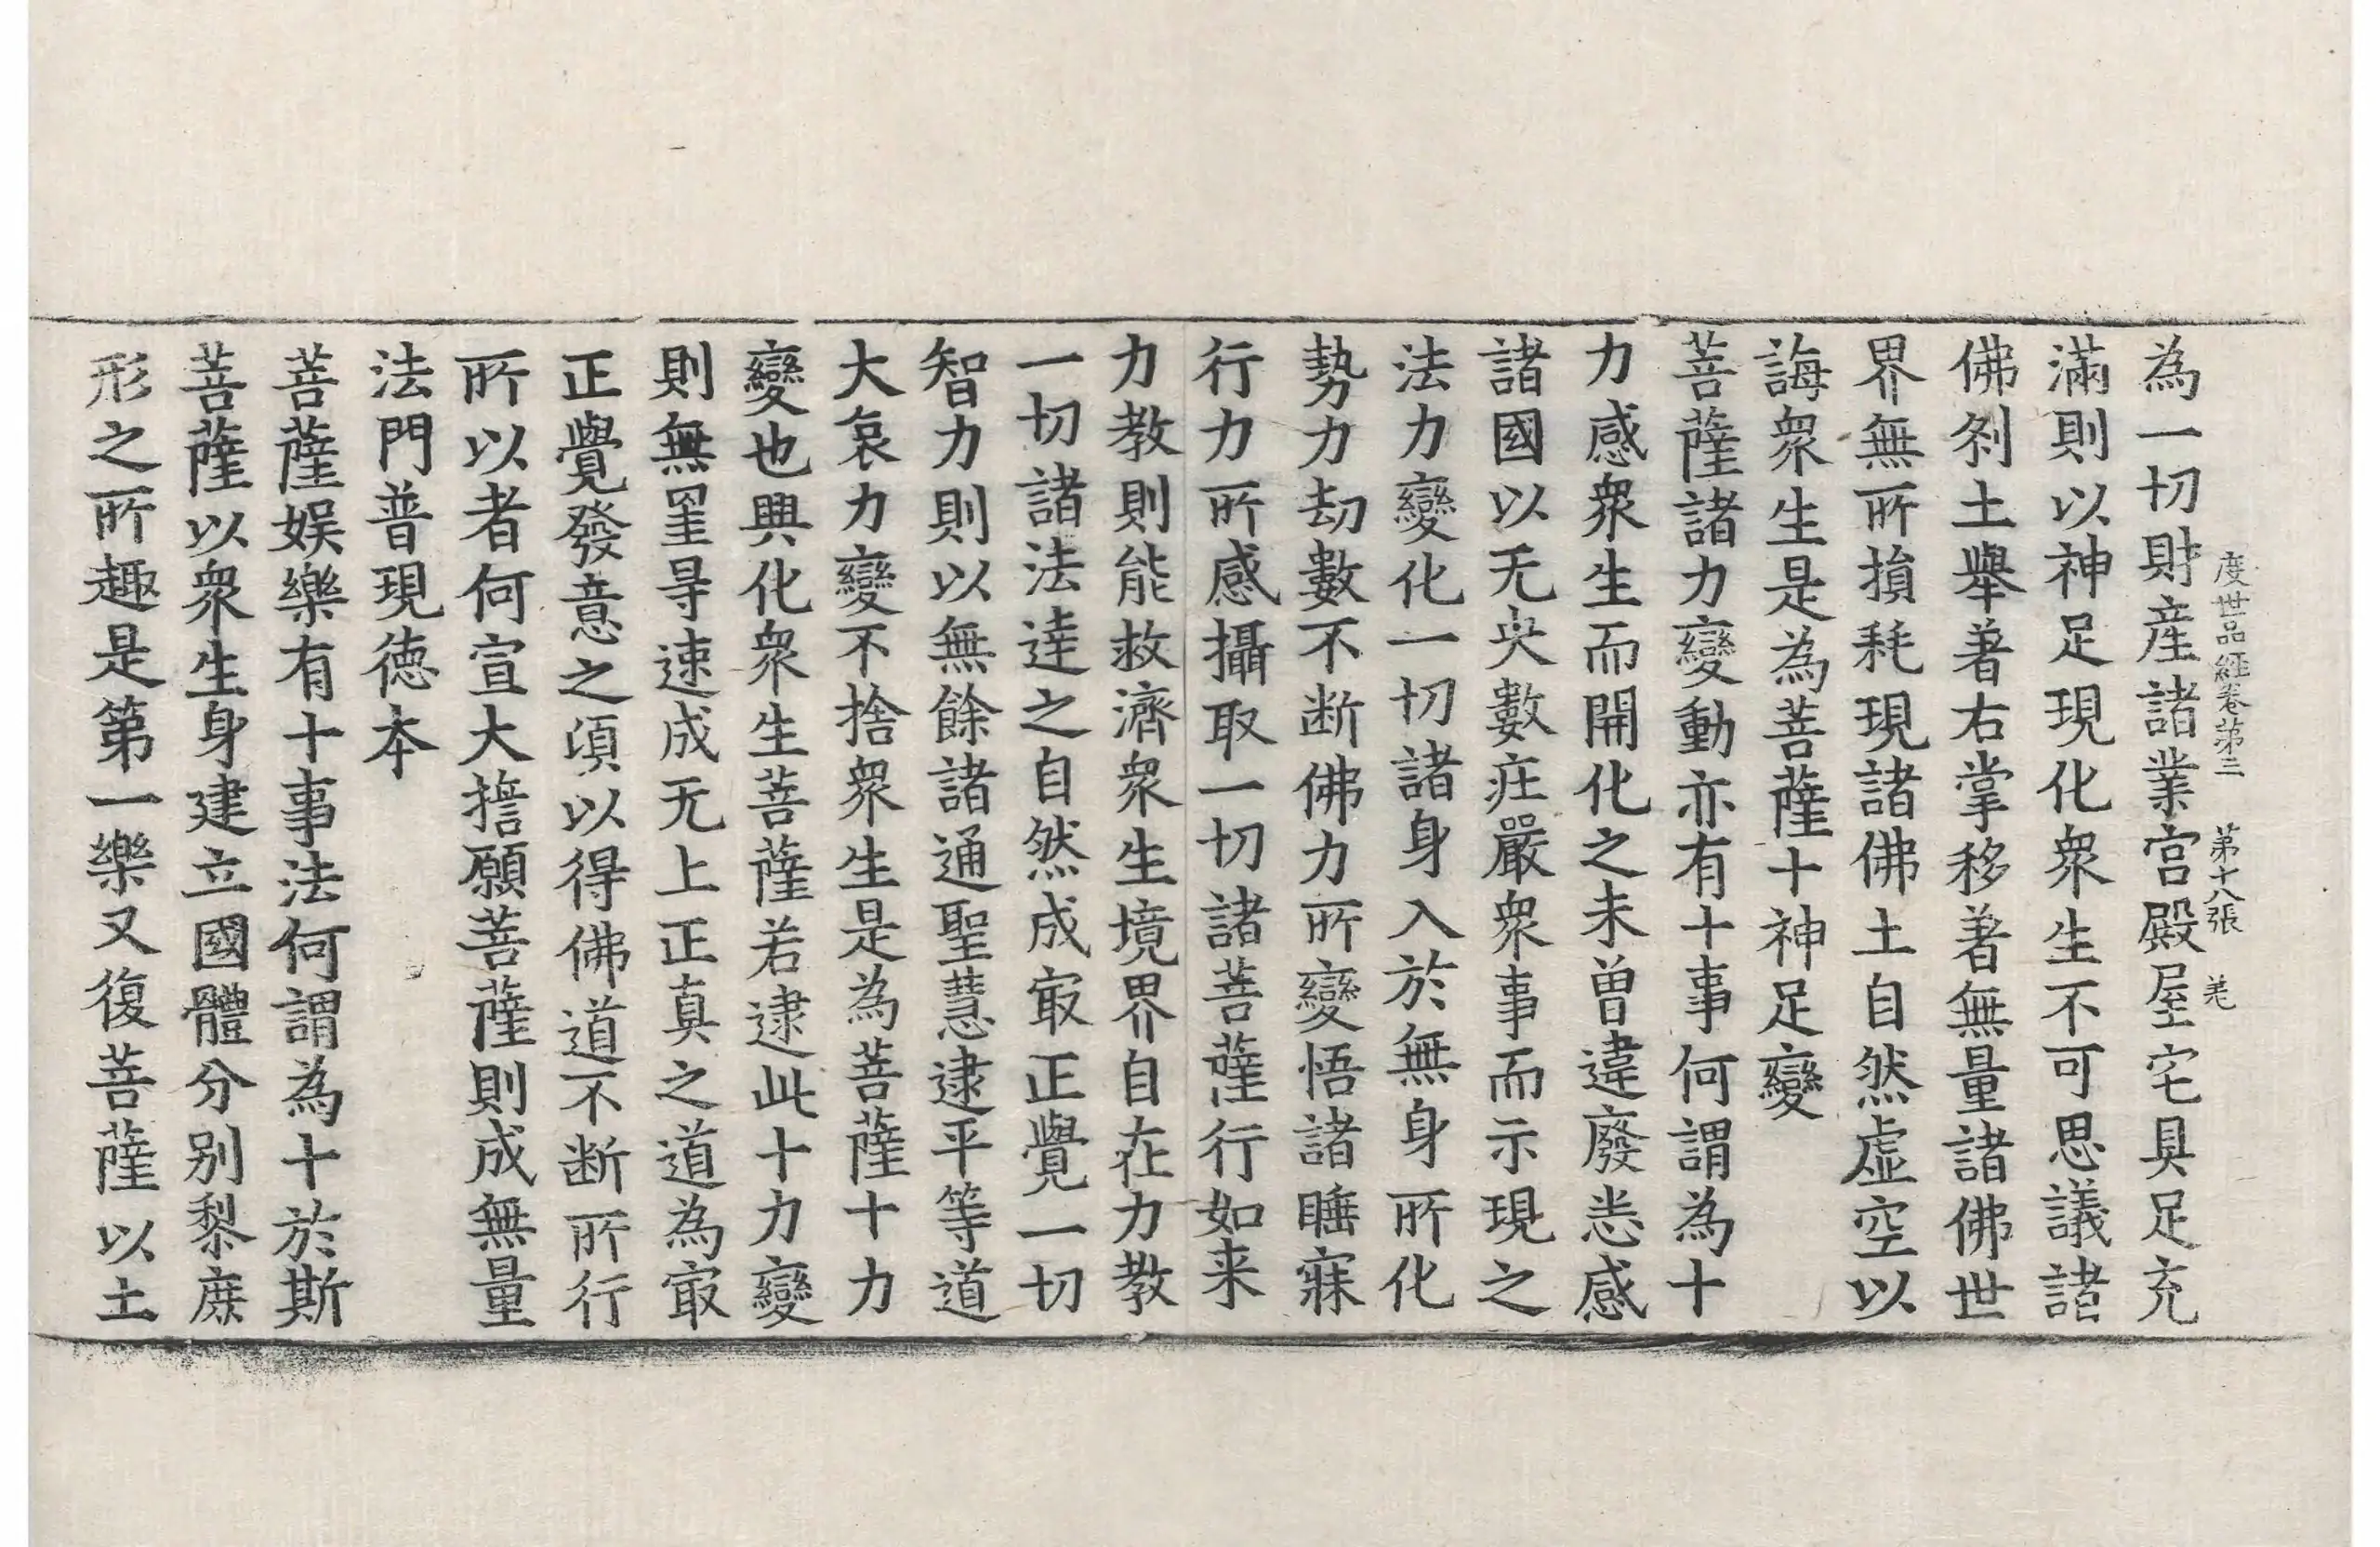 度世品經卷第三 第十八張 羌
為一切財産諸業宮殿屋宅具足充
滿則以神足現化衆生不可思議諸
佛刹土舉著右掌移著無量諸佛世
界無所損耗現諸佛土自然虛空以
誨衆生是為菩薩十神足變
菩薩諸力變動亦有十事何謂為十
力感衆生而開化之未曽違廢恙感
諸國以无央數莊嚴衆事而示現之
法力變化一切諸身入於無身所化
勢力劫數不断佛力所變悟諸睡寐
行力所感攝取一切諸菩薩行如来
力教則能救濟衆生境界自在力教
一切諸法達之自然成㝡正覺一切
智力則以無餘諸通聖慧逮平等道
大哀力變不捨衆生是為菩薩十力
變也興化衆生菩薩若逮此十力變
則無罣㝵速成无上正真之道為㝡
正覺發意之頃以得佛道不断所行
所以者何宣大擔願菩薩則成無量
法門普現德本
菩薩娛樂有十事法何謂為十於斯
菩薩以衆生身建立國體分别黎庶
形之所趣是第一樂又復菩薩以土